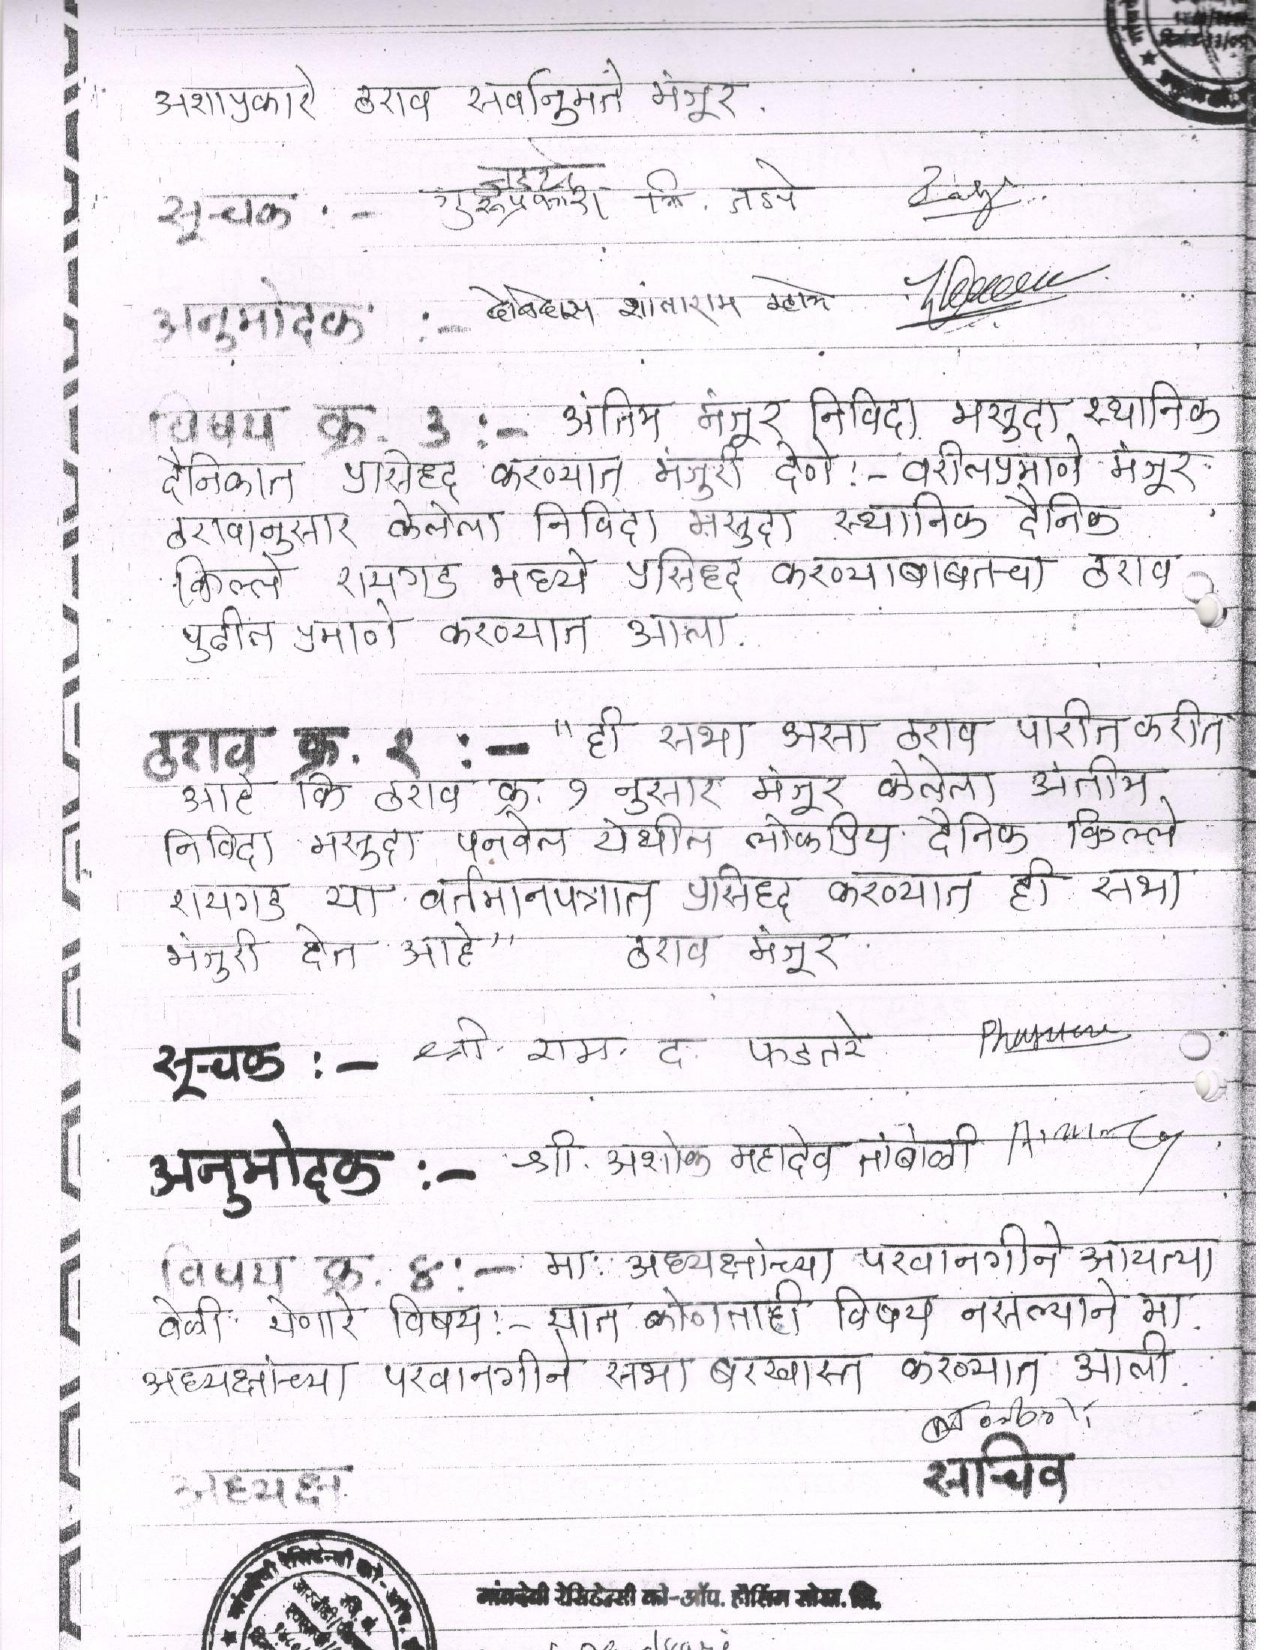 अशाप्रकारे ठराव सर्वानुमते मंजूर.
सूचक :- गुरुप्रकाश कि. तडपे
अनुमोदक :- शांताराम
विषय क्र. ३ :- अंतिम मंजूर निविदा मसुदा स्थानिक
दैनिकात प्रसिध्द करण्यात मंजुरी देणे :- वरीलप्रमाणे मंजूर
ठरावानुसार केलेला निविदा मसुदा स्थानिक दैनिक
किल्ले रायगड मध्ये प्रसिध्द करण्याबाबतचा ठराव
पुढील प्रमाणे करण्यात आला.
ठराव क्र. २ :- "ही सभा असा ठराव पारीत करीत
आहे कि ठराव क्र. १ नुसार मंजूर केलेला अंतीम
निविदा मसुदा पनवेल येथील लोकप्रिय दैनिक किल्ले
रायगड या वर्तमानपत्रात प्रसिध्द करण्यात ही सभा
मंजुरी देत आहे" ठराव मंजूर
सूचक :- श्री. राम. द. फडतरे
अनुमोदक :- श्री. अशोक महादेव तांबोळी
विषय क्र. ४ :- मा. अध्यक्षांच्या परवानगीने आयत्या
वेळी येणारे विषय :- यात कोणताही विषय नसल्याने मा.
अध्यक्षांच्या परवानगीने सभा बरखास्त करण्यात आली.
अध्यक्ष सचिव
गांवदेवी रेसिडेन्सी को-ऑप. हौसिंग सोसा. लि.
गांवदेवी रेसिडेन्सी को-ऑप.